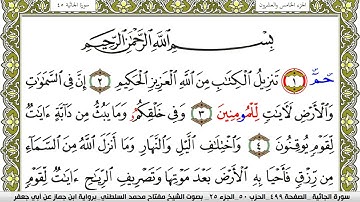 الجزء الخامس والعشرون سورة الجاثية ٤٥
بِسْمِ اللَّهِ الرَّحْمَٰنِ الرَّحِيمِ
حمٓ ١ تَنزِيلُ الْكِتَٰبِ مِنَ اللَّهِ الْعَزِيزِ الْحَكِيمِ ٢ إِنَّ فِي السَّمَٰوَٰتِ
وَالْأَرْضِ لَأٓيَٰتٍ لِّلْمُومِنِينَ ٣ وَفِي خَلْقِكُمُۥ وَمَا يَبُثُّ مِن دَآبَّةٍ ءَايَٰتٌ
لِّقَوْمٍ يُوقِنُونَ ٤ وَاخْتِلَٰفِ اللَّيْلِ وَالنَّهَارِ وَمَآ أَنزَلَ اللَّهُ مِنَ السَّمَآءِ
مِن رِّزْقٍ فَأَحْيَا بِهِ الْأَرْضَ بَعْدَ مَوْتِهَا وَتَصْرِيفِ الرِّيَٰحِ ءَايَٰتٌ لِّقَوْمٍ
سورة الجاثية الصفحة ٤٩٩ الحزب ٥٠ الجزء ٢٥ بصوت الشيخ مفتاح محمد السلطني برواية ابن جماز عن أبي جعفر